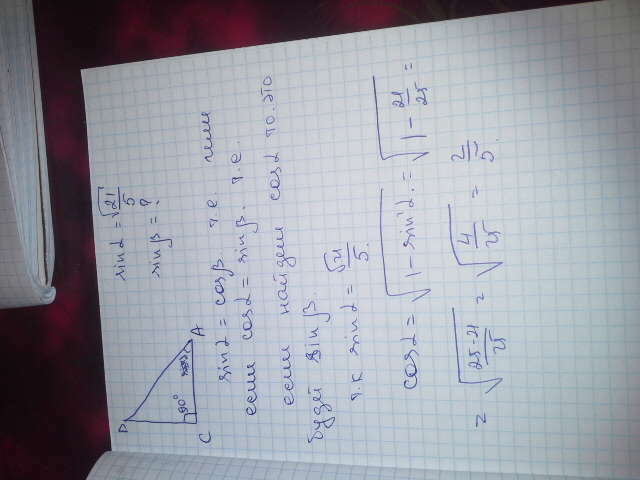 B
sin α = √21/5
sin β = ?
90°
C
A
sin α = cos β. т.е. или
если cos α = sin β. т.е.
если найдем cos α то это
будет sin β.
т.к sin α = √21/5.
cos α = √(1 − sin² α.) = √(1 − 21/25) =
= √((25-21)/25) = √(4/25) = 2/5.